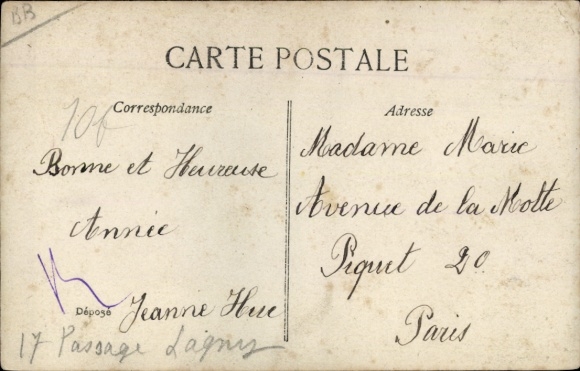 BB
CARTE POSTALE
Correspondance
10f
Bonne et Heureuse
Année
Déposé
Jeanne Hue
17 Passage Lagny
Adresse
Madame Marie
Avenue de la Motte
Piquet 20.
Paris